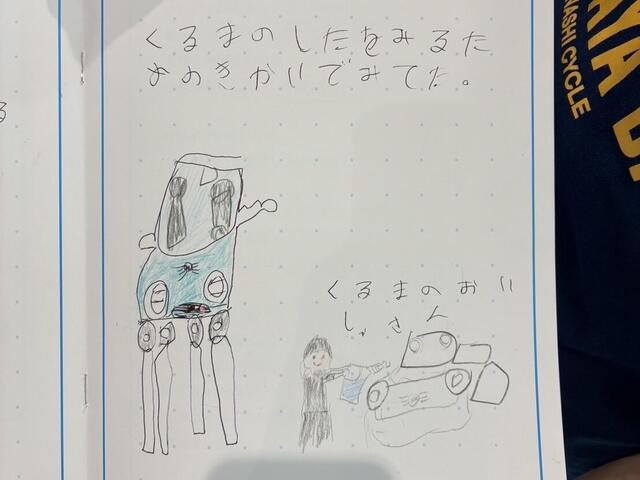 くるまのしたをみるた
めのきかいでみてた。
くるまのおい
しゃさん
る
AYA
HASHI CYCLE